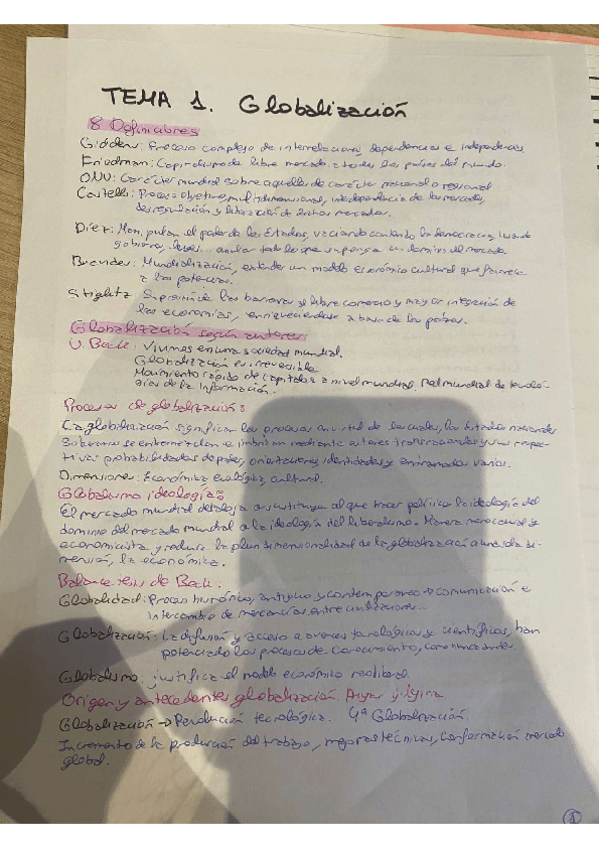 TEMA 1. Globalización
8 Definiciones
Giddens: Proceso complejo de interrelaciones, dependencias e independencias
Friedman: Capitalismo de libre mercado a todos los países del mundo.
ONU: Carácter mundial sobre aquellas de carácter nacional o regional
Castells: Proceso objetivo, multidimensional, independencia de los mercados,
desregulación y liberación de dichos mercados.
Díez: el poder de los Estados, vaciando contenido la democracia,
gobierno, leyes... todo lo que suponga un dominio del mercado.
Mundialización, entender un modelo económico cultural que favorece
a las potencias.
Stiglitz: Supresión de las barreras al libre comercio y mayor integración de
las economías, enriqueciéndose a base de los países.
Globalización según autores
U. Beck: Vivimos en una sociedad mundial.
Globalización es irreversible
Movimiento rápido de capitales a nivel mundial. Red mundial de tecnolo-
gías de la información.
Procesos de globalización:
La globalización significa los procesos en virtud de los cuales, los Estados nacionales
soberanos se entremezclan e imbrican mediante actores transnacionales y sus respec-
tivas probabilidades de poder, orientaciones, identidades y entramados varios.
Dimensiones: Económica ecológica, cultural.
Globalismo ideología:
El mercado mundial desaloja o sustituye al quehacer político la ideología del
dominio del mercado mundial o la ideología del liberalismo. Manera monocausal y
economicista y reduce la pluridimensionalidad de la globalización a una sola di-
mensión, la económica.
Balance tesis de Beck.
Globalidad: Proceso histórico, antiguo y contemporáneo → comunicación e
intercambio de mercancías entre civilizaciones...
Globalización: La difusión y acceso a avances tecnológicos y científicos, han
potenciado los procesos de conocimiento, como nunca antes.
Globalismo: justifica el modelo económico neoliberal.
Origen y antecedentes globalización
Globalización → Revolución tecnológica. 4ª Globalización.
Incremento de la producción del trabajo, mejoras técnicas, conformación mercado
global.
1